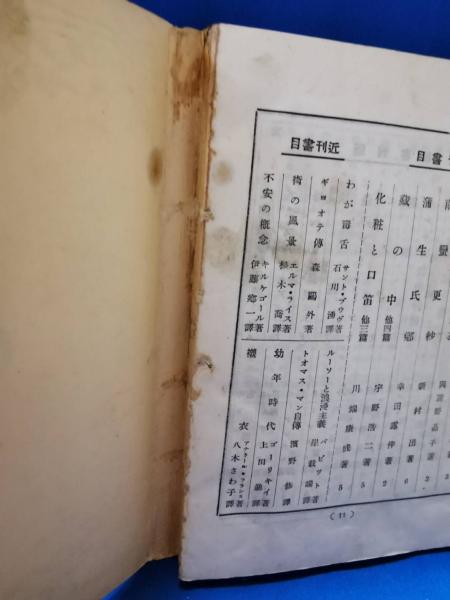 書目
南蠻更紗 新村出著 2.
蒲生氏郷 幸田露伴著 6
藏の中 他四篇 宇野浩二著 2
化粧と口笛 他三篇 川端康成著 5
近刊書目
わが毒舌 サント・ブウヴ著 石川湧譯
ギョオテ傳 森鷗外著
街の風景 エルマ・ライス著 杉木喬譯
不安の概念 キルケゴール著 伊藤郷一譯
ルーソーと浪漫主義 バビット著 崔載瑞譯
トオマス・マン自傳 濱野修譯
幼年時代 ゴーリキイ著 上田進譯
襯衣 アナトール・フランス著 八木さわ子譯
(11)